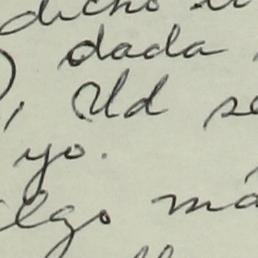 dicho
dada
, Ud se
yo.
algo má